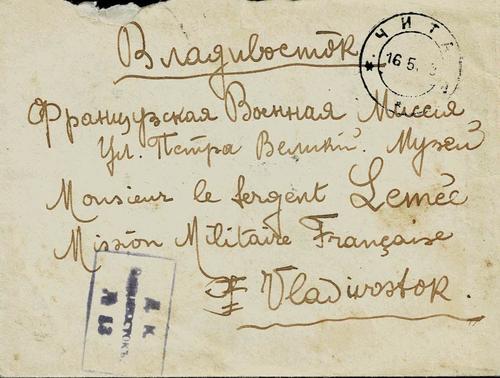 Владивосток
Французская Военная Миссия
Ул. Петра Великій. Музей
Monsieur le sergent Lemée
Mission Militaire Française
Vladivostok.
ЧИТА
16 5
Д. К.
№ 13